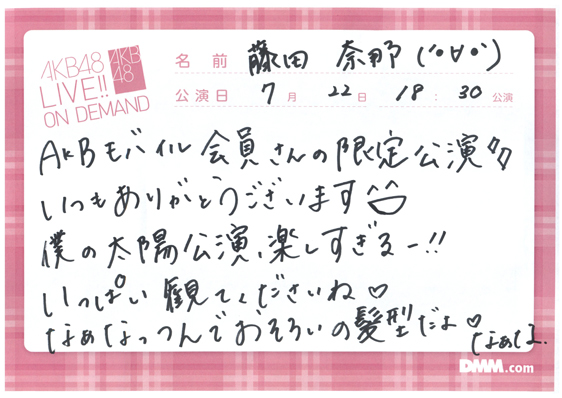 AKB48
LIVE!!
ON DEMAND
AKB
48
名前 藤田 奈那 (°∀°)
公演日 7月 22日 18:30公演
AKBモバイル会員さんの限定公演
いつもありがとうございます
僕の太陽公演、楽しすぎるー!!
いっぱい観てくださいね♡
なぁなっつんでおそろいの髪型だよ♡
なぁな.
DMM.com